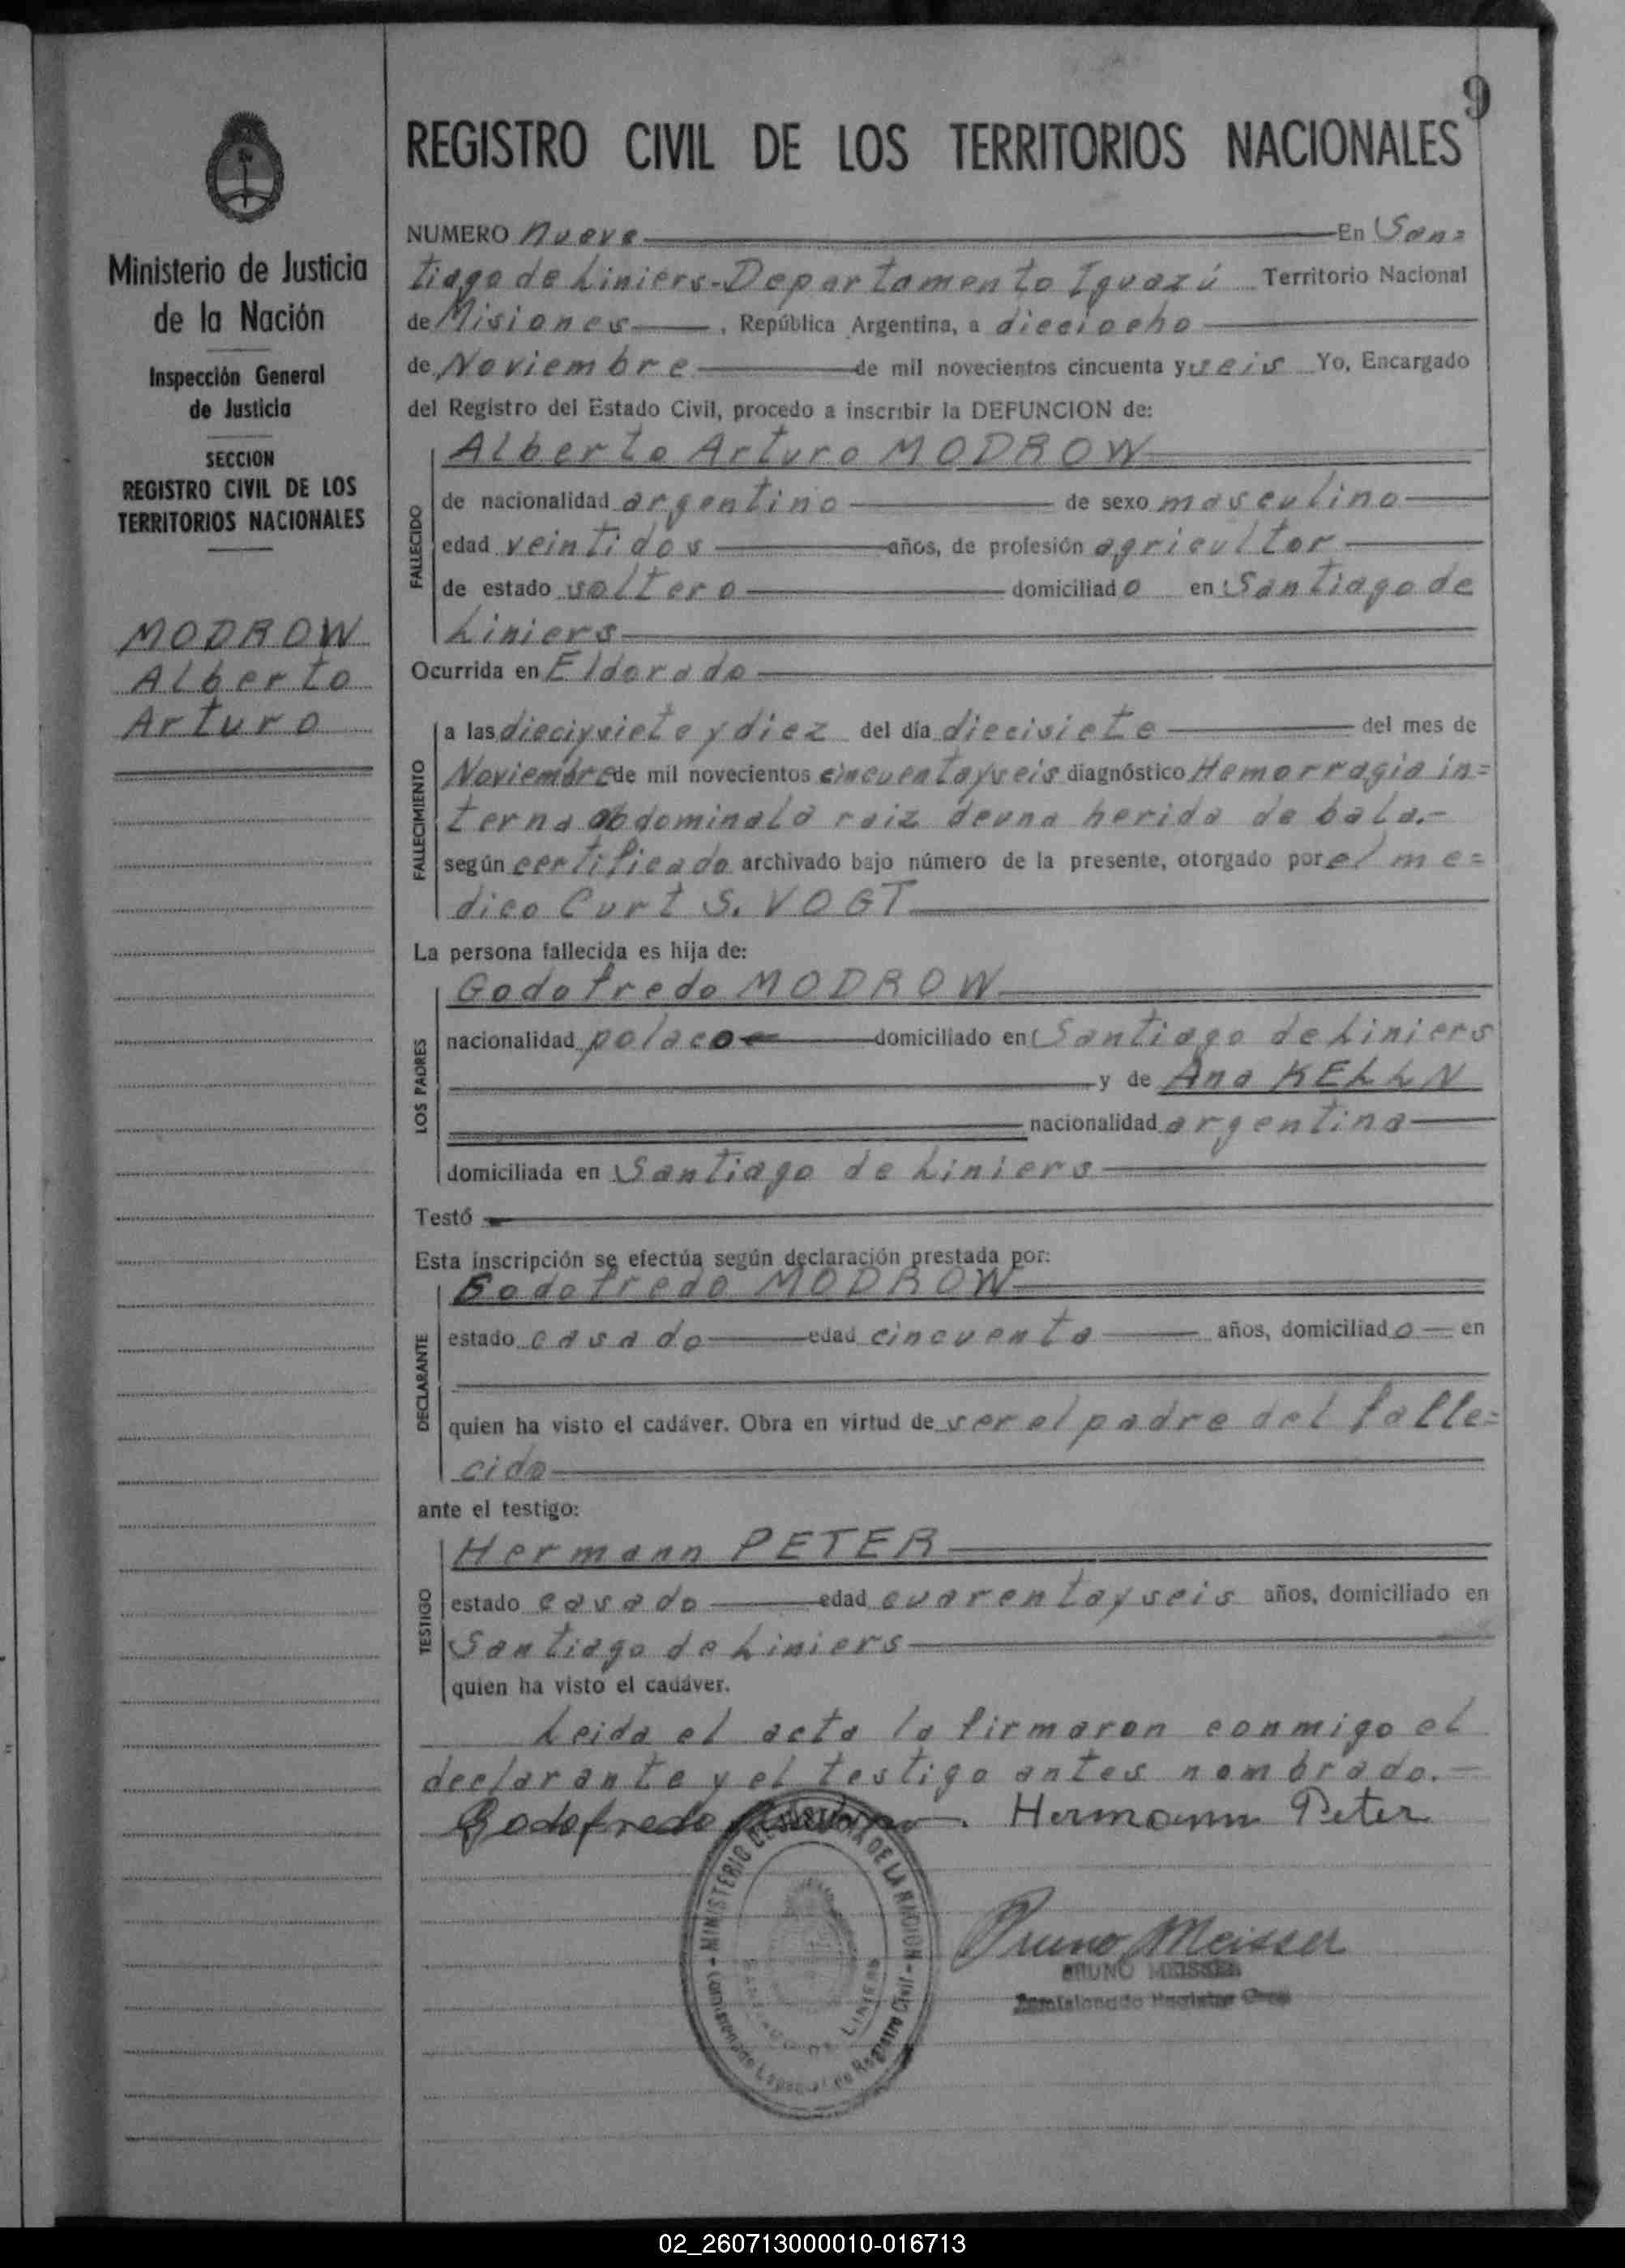 9
REGISTRO CIVIL DE LOS TERRITORIOS NACIONALES
Ministerio de Justicia
de la Nación
Inspección General
de Justicia
SECCION
REGISTRO CIVIL DE LOS
TERRITORIOS NACIONALES
MODROW
Alberto
Arturo
NUMERO nueve En San=
tiago de Liniers-Departamento Iguazú Territorio Nacional
de Misiones, República Argentina, a dieciocho
de Noviembre de mil novecientos cincuenta y seis Yo, Encargado
del Registro del Estado Civil, procedo a inscribir la DEFUNCION de:
FALLECIDO
Alberto Arturo MODROW
de nacionalidad argentino de sexo masculino
edad veintidos años, de profesión agricultor
de estado soltero domiciliado en Santiago de
Liniers
Ocurrida en Eldorado
FALLECIMIENTO
a las diecisiete y diez del día diecisiete del mes de
Noviembre de mil novecientos cincuentayseis diagnóstico Hemorragia in=
terna abdominal a raiz deuna herida de bala.-
según certificado archivado bajo número de la presente, otorgado por el me=
dico Curt S. VOGT
La persona fallecida es hija de:
LOS PADRES
Godofredo MODROW
nacionalidad polaco domiciliado en Santiago de Liniers
y de Ana KELLN
nacionalidad argentina
domiciliada en Santiago de Liniers
Testó
Esta inscripción se efectúa según declaración prestada por:
DECLARANTE
Godofredo MODROW
estado casado edad cincuenta años, domiciliado en
quien ha visto el cadáver. Obra en virtud de ser el padre del falle=
cido
ante el testigo:
TESTIGO
Hermann PETER
estado casado edad cuarentayseis años, domiciliado en
Santiago de Liniers
quien ha visto el cadáver.
Leida el acta la firmaron conmigo el
declarante y el testigo antes nombrado.-
Godofredo Hermann Peter
MINISTERIO DE JUSTICIA DE LA NACION
SANTIAGO DE LINIERS
Comisionado Especial de Registro Civil
Bruno Meisser
BRUNO MEISSER
Comisionado Registro Civil
02_260713000010-016713